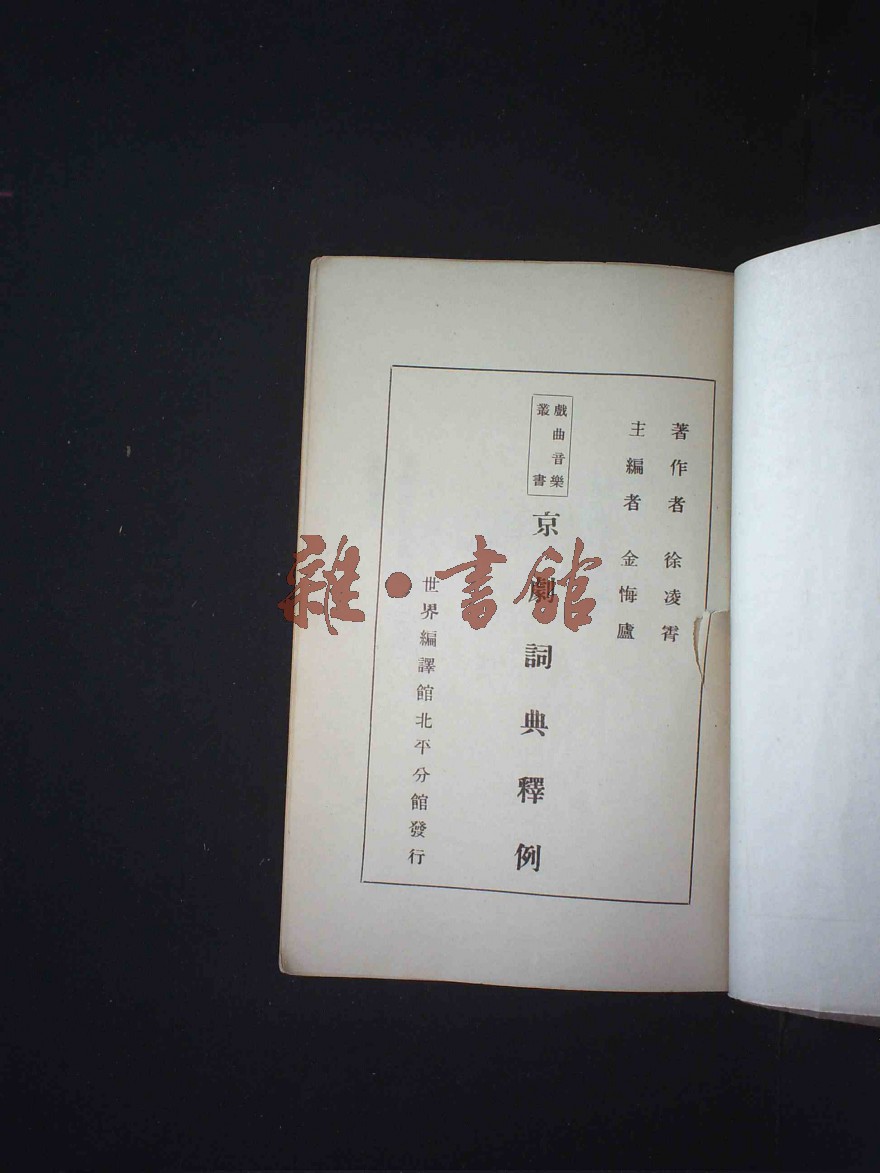 著作者 徐凌霄
主編者 金悔廬
戲曲音樂
叢書
京劇詞典釋例
世界編譯館北平分館發行
雜·書館